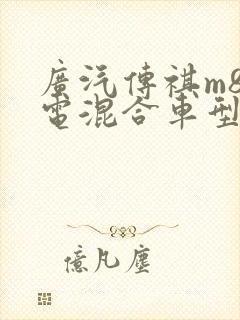 廣汽傳祺m8
電混合車型
億凡塵